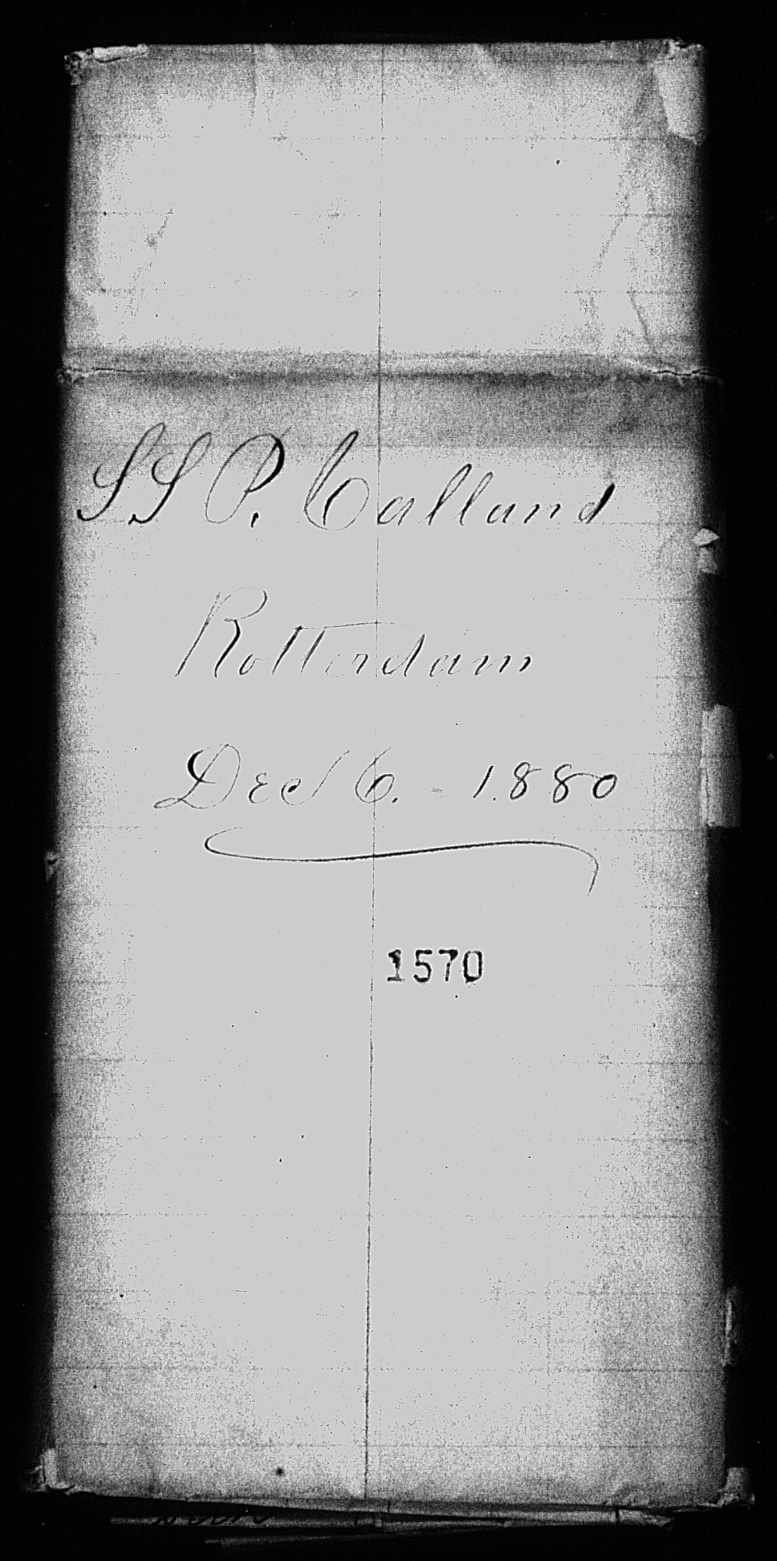 SS P. Calland
Rotterdam
Dec 6. - 1880
1570